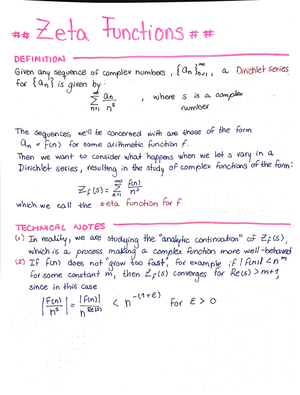 ## Zeta Functions ##
DEFINITION
Given any sequence of complex numbers, {aₙ}ₙ₌₁^∞, a Dirichlet series
for {aₙ} is given by:
∑ₙ₌₁^∞ aₙ/nˢ , where s is a complex
number
The sequences we'll be concerned with are those of the form
aₙ = f(n) for some arithmetic function f.
Then we want to consider what happens when we let s vary in a
Dirichlet series, resulting in the study of complex functions of the form:
Z_f(s) = ∑ₙ₌₁^∞ f(n)/nˢ
which we call the zeta function for f
TECHNICAL NOTES
(1) In reality, we are studying the "analytic continuation" of Z_f(s),
which is a process making a complex function more well-behaved
(2) If f(n) does not "grow too fast", for example if |f(n)| < n^m
for some constant m, then Z_f(s) converges for Re(s) > m+1,
since in this case
|f(n)/nˢ| = |f(n)|/n^Re(s) < n^-(1+ε) for ε > 0